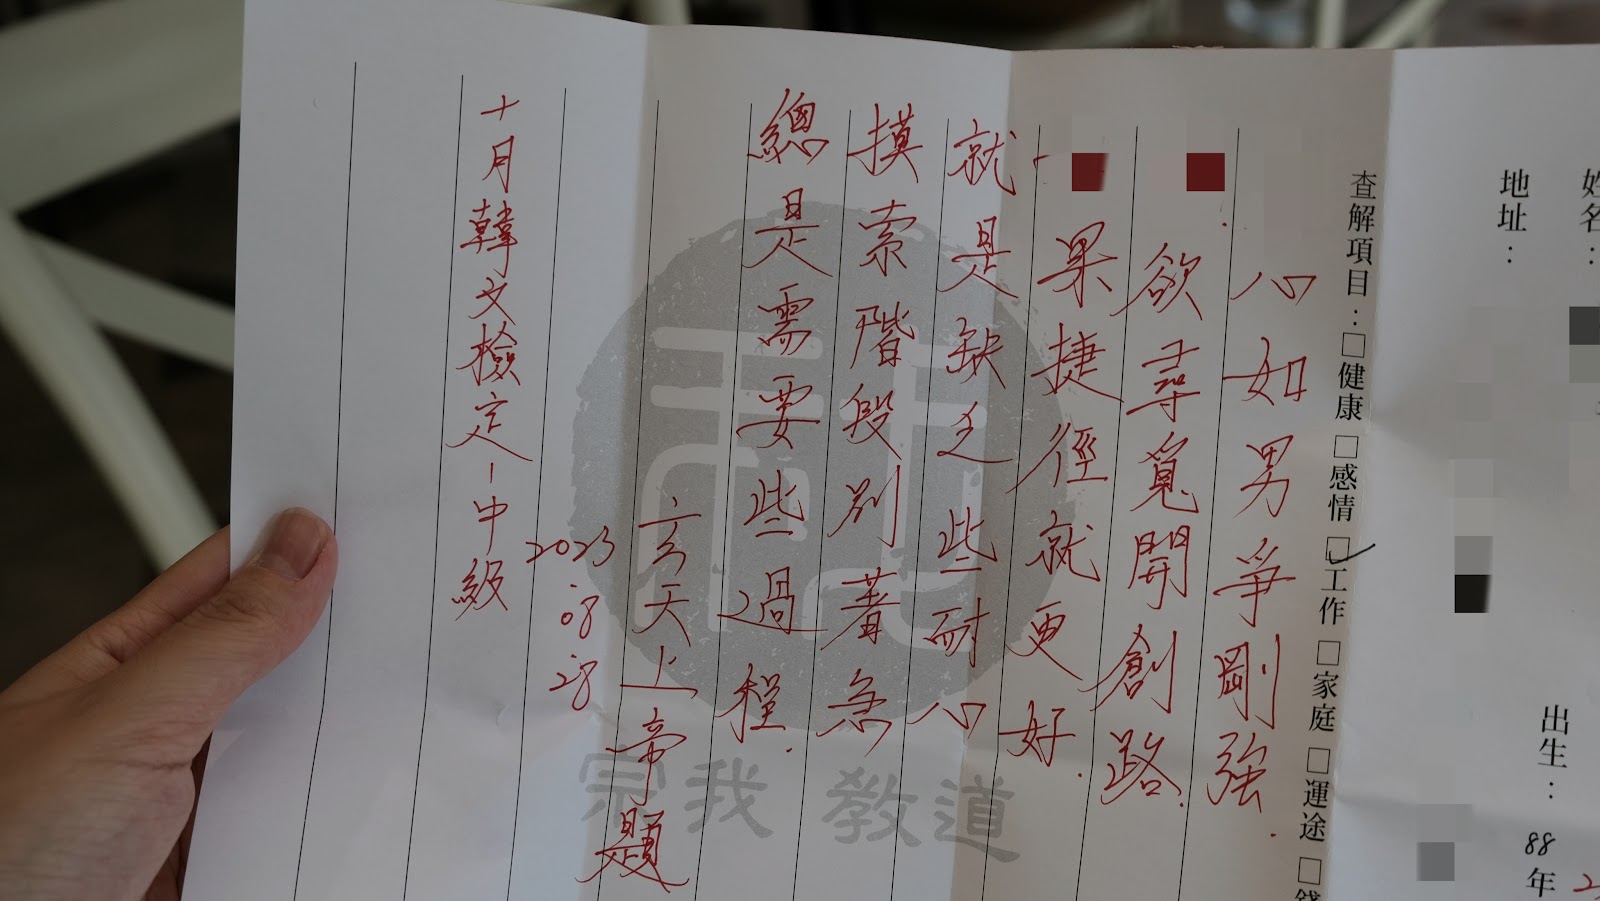 姓名：
地址：
出生：88年
查解項目：□健康 □感情 ☑工作 □家庭 □運途 □錢
心如男爭剛強.
欲尋覓開創路.
果捷徑就更好.
就是缺乏些耐心
摸索階段別著急
總是需要些過程.
玄天上帝題
2023.08.28
十月韓文檢定-中級
宗我教道